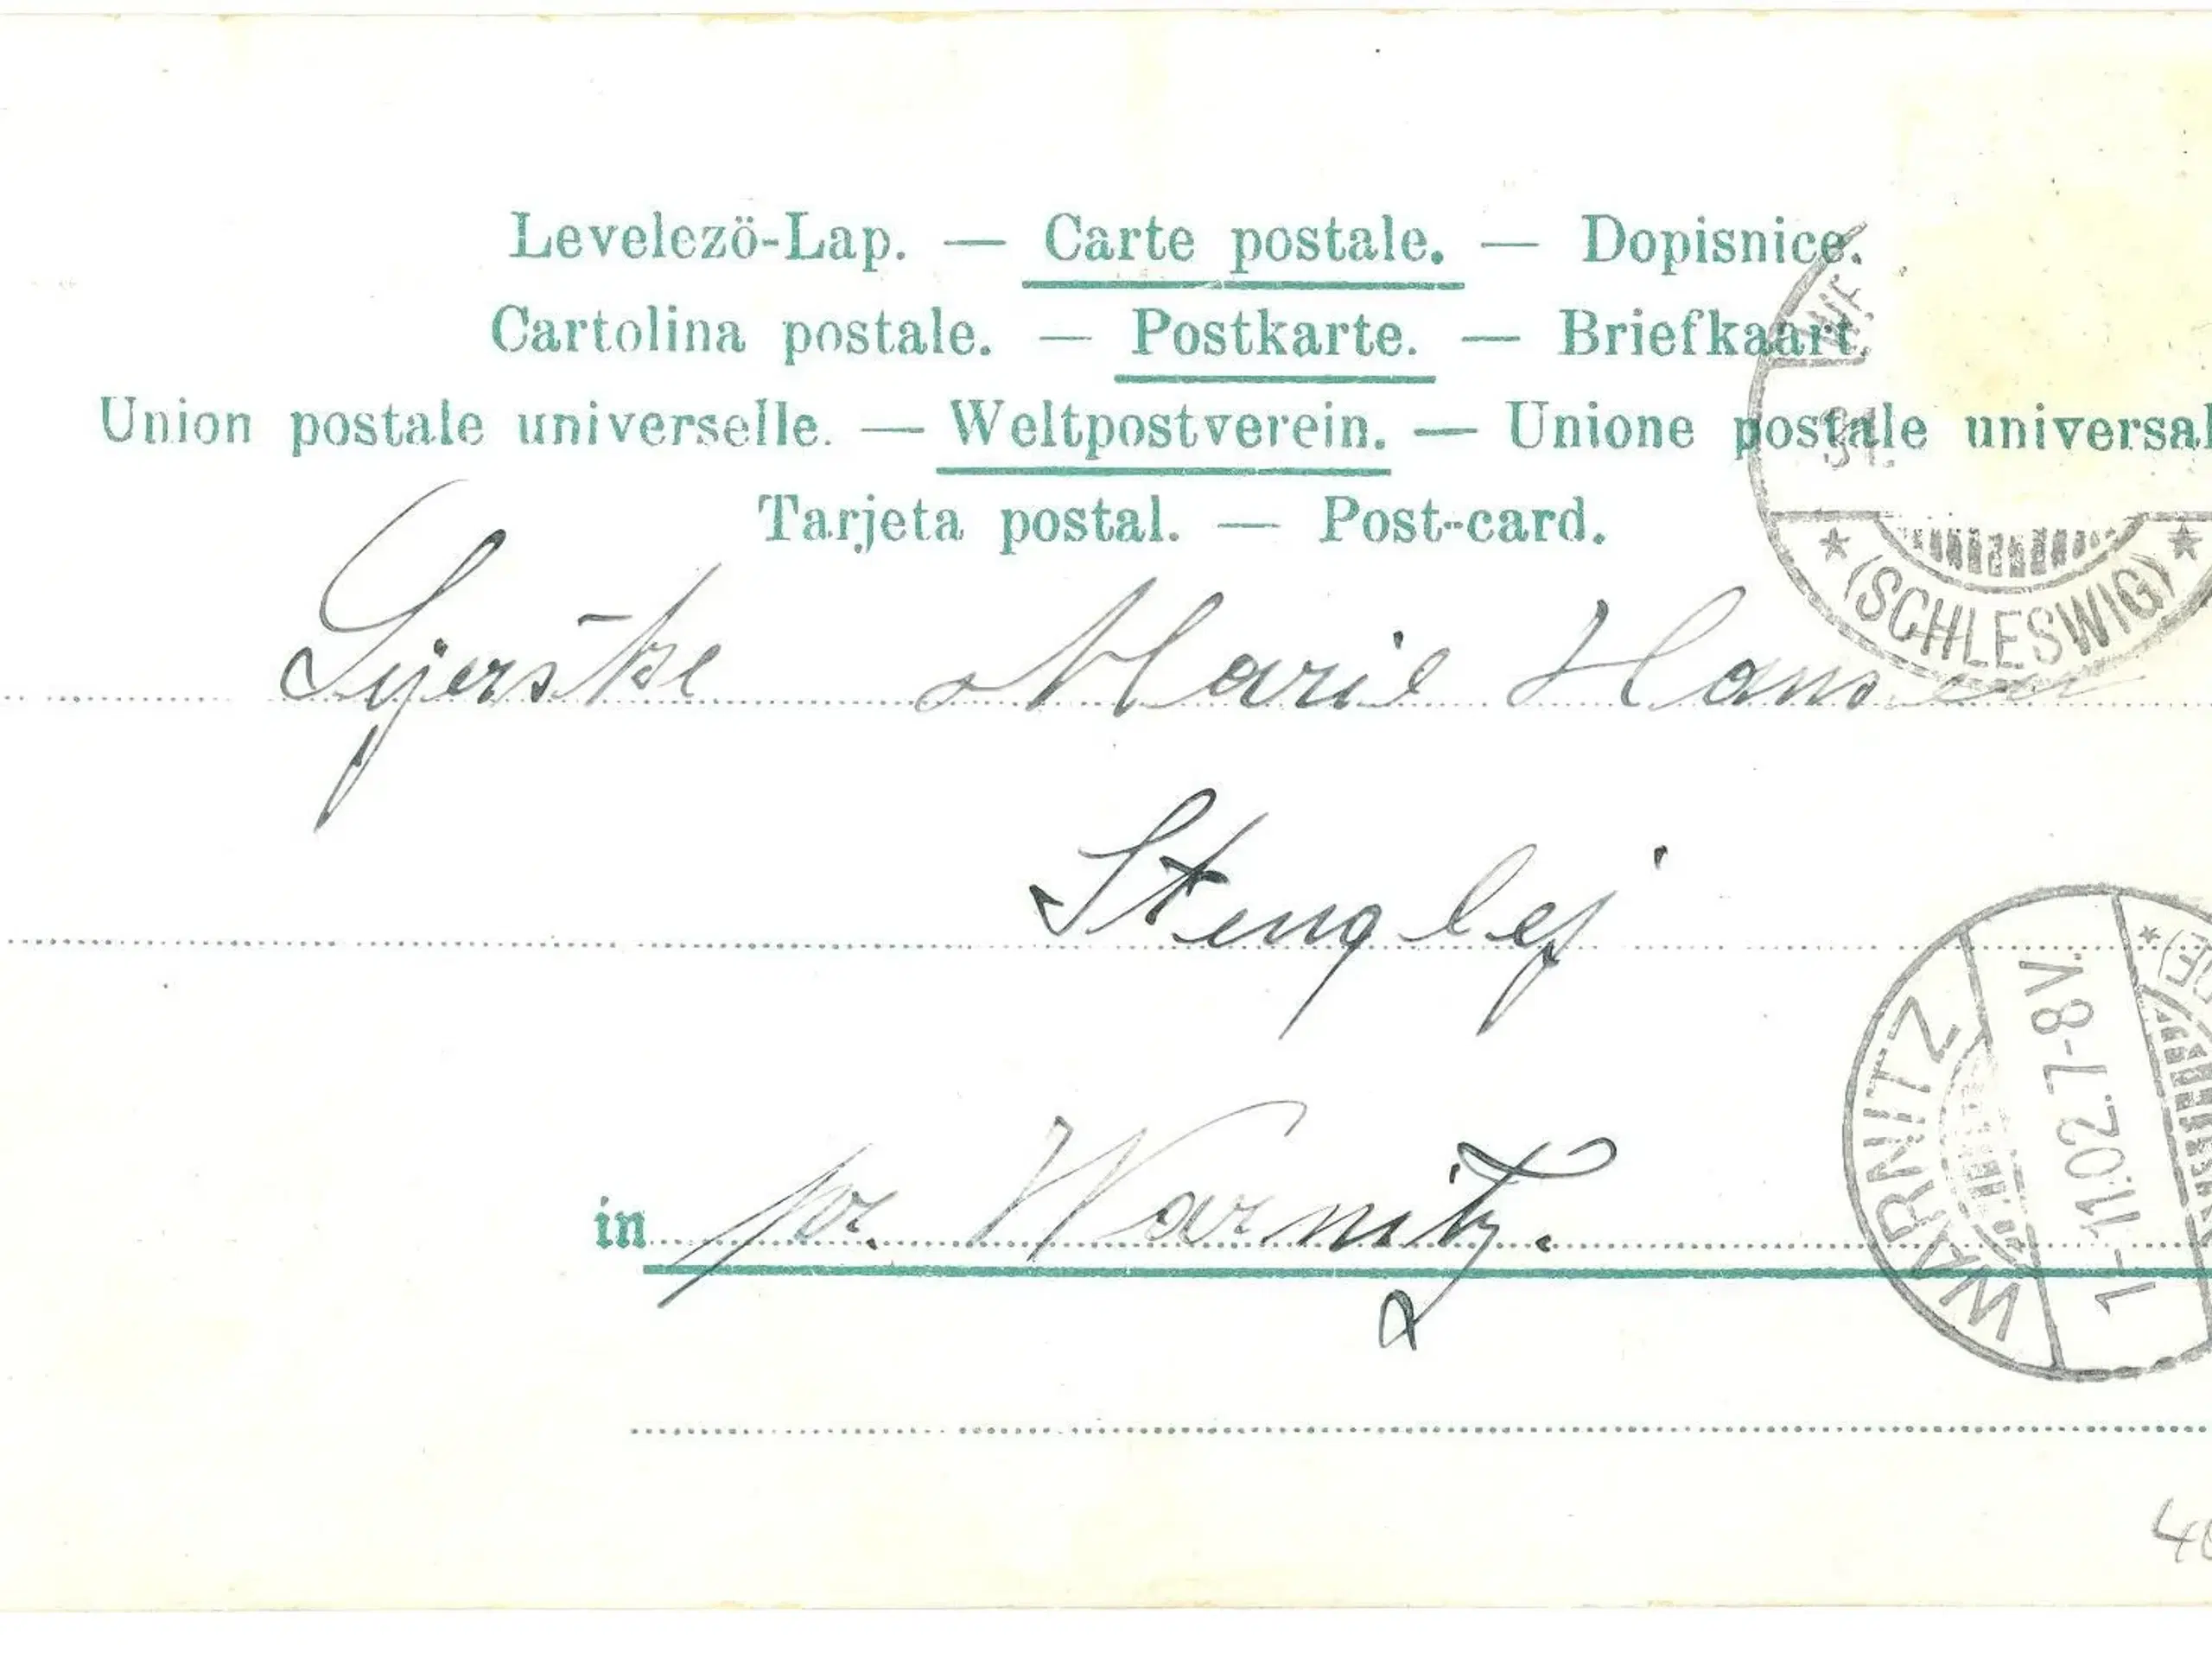 Levelezö-Lap. — Carte postale. — Dopisnice.
Cartolina postale. — Postkarte. — Briefkaart.
Union postale universelle. — Weltpostverein. — Unione postale universal
Tarjeta postal. — Post-card.
31.
★ (SCHLESWIG) ★
Marie Hansen
Stenglej
in pr. Warnitz.
WARNITZ
1-11.02.7-8V.